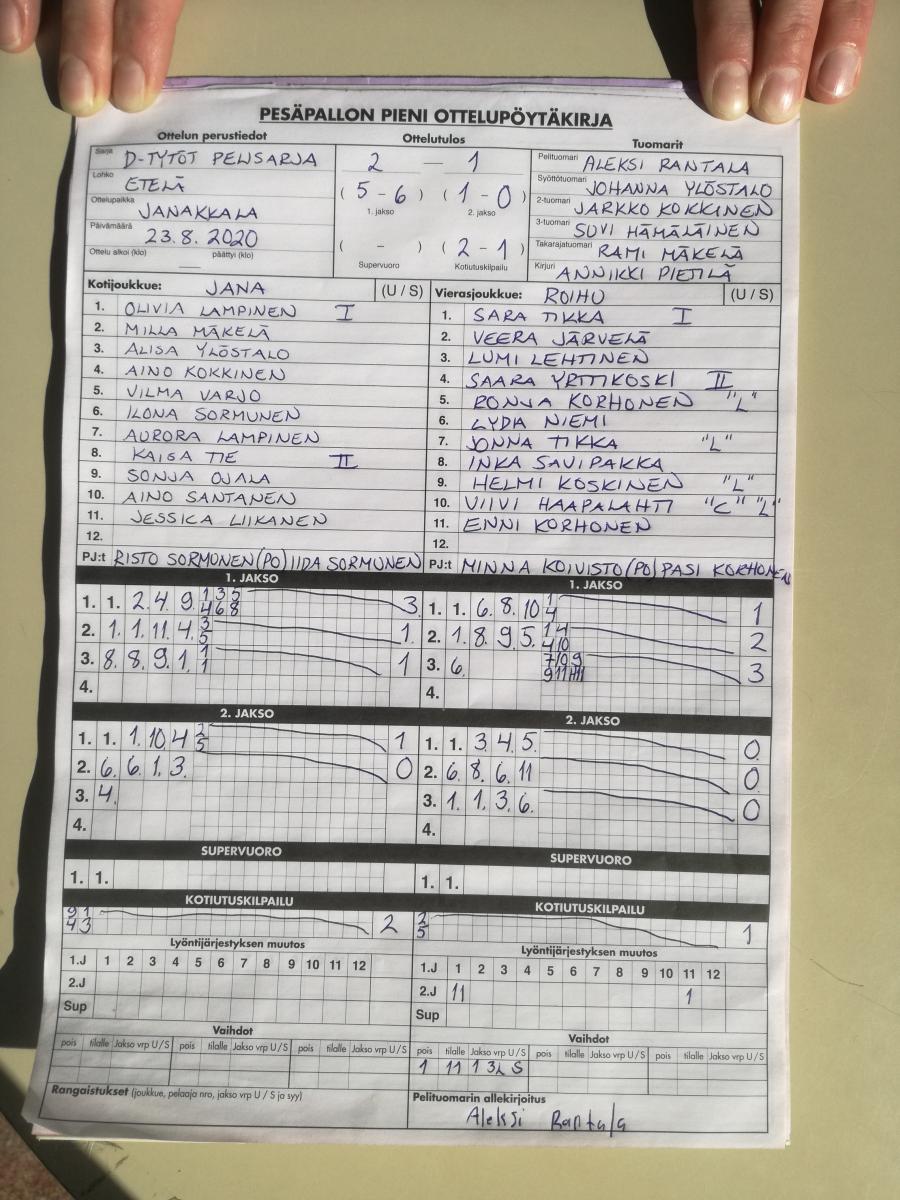 PESÄPALLON PIENI OTTELUPÖYTÄKIRJA
Ottelun perustiedot Ottelutulos Tuomarit
Sarja D-TYTÖT PELISARJA 2 — 1 Pelituomari ALEKSI RANTALA
Lohko ETELÄ (5 - 6) (1 - 0) Syöttötuomari JOHANNA YLÖSTALO
1. jakso 2. jakso
Ottelupaikka JANAKKALA 2-tuomari JARKKO KOKKINEN
Päivämäärä 23.8.2020 3-tuomari SUVI HÄMÄLÄINEN
( - ) (2 - 1) Takarajatuomari RAMI MÄKELÄ
Ottelu alkoi (klo) — päättyi (klo) Supervuoro Kotiutuskilpailu Kirjuri ANNIKKI PIETILÄ
Kotijoukkue: JANA (U / S) Vierasjoukkue: ROIHU (U / S)
1. OLIVIA LAMPINEN I 1. SARA TIKKA I
2. MILLA MÄKELÄ 2. VEERA JÄRVELÄ
3. ALISA YLÖSTALO 3. LUMI LEHTINEN
4. AINO KOKKINEN 4. SAARA YRTTIKOSKI II
5. VILMA VARJO 5. RONJA KORHONEN "L"
6. ILONA SORMUNEN 6. LYDIA NIEMI
7. AURORA LAMPINEN 7. JONNA TIKKA "L"
8. KAISA TIE II 8. INKA SAVIPAKKA
9. SONJA OJALA 9. HELMI KOSKINEN "L"
10. AINO SANTANEN 10. VIIVI HAAPALAHTI "C" "L"
11. JESSICA LIIKANEN 11. ENNI KORHONEN
12. 12.
PJ:t RISTO SORMUNEN (PO) IIDA SORMUNEN PJ:t MINNA KOIVISTO (PO) PASI KORHONEN
1. JAKSO 1. JAKSO
1. 1. 2. 4. 9. 1 3 5 3 1. 1. 6. 8. 10 1 1
4 6 8 4
2. 1. 1. 11. 4. 3 1 2. 1. 8. 9. 5. 1 4 2
5 4 10
3. 8. 8. 9. 1. 1 1 3. 6. 7 10 9 3
1 9 11
4. 4.
2. JAKSO 2. JAKSO
1. 1. 1. 10. 4 2 1 1. 1. 3. 4. 5. 0
5
2. 6. 6. 1. 3. 0 2. 6. 8. 6. 11 0
3. 4. 3. 1. 1. 3. 6. 0
4. 4.
SUPERVUORO SUPERVUORO
1. 1. 1. 1.
KOTIUTUSKILPAILU KOTIUTUSKILPAILU
9 1 2 2 1
4 3 5
Lyöntijärjestyksen muutos Lyöntijärjestyksen muutos
1.J 1 2 3 4 5 6 7 8 9 10 11 12 1.J 1 2 3 4 5 6 7 8 9 10 11 12
2.J 2.J 11 1
Sup Sup
Vaihdot Vaihdot
pois tilalle Jakso vrp U/S pois tilalle Jakso vrp U/S pois tilalle Jakso vrp U/S pois tilalle Jakso vrp U/S pois tilalle Jakso vrp U/S pois tilalle Jakso vrp U/S
1 11 1 3L S
Rangaistukset (joukkue, pelaaja nro, jakso vrp U / S ja syy) Pelituomarin allekirjoitus
Aleksi Rantala